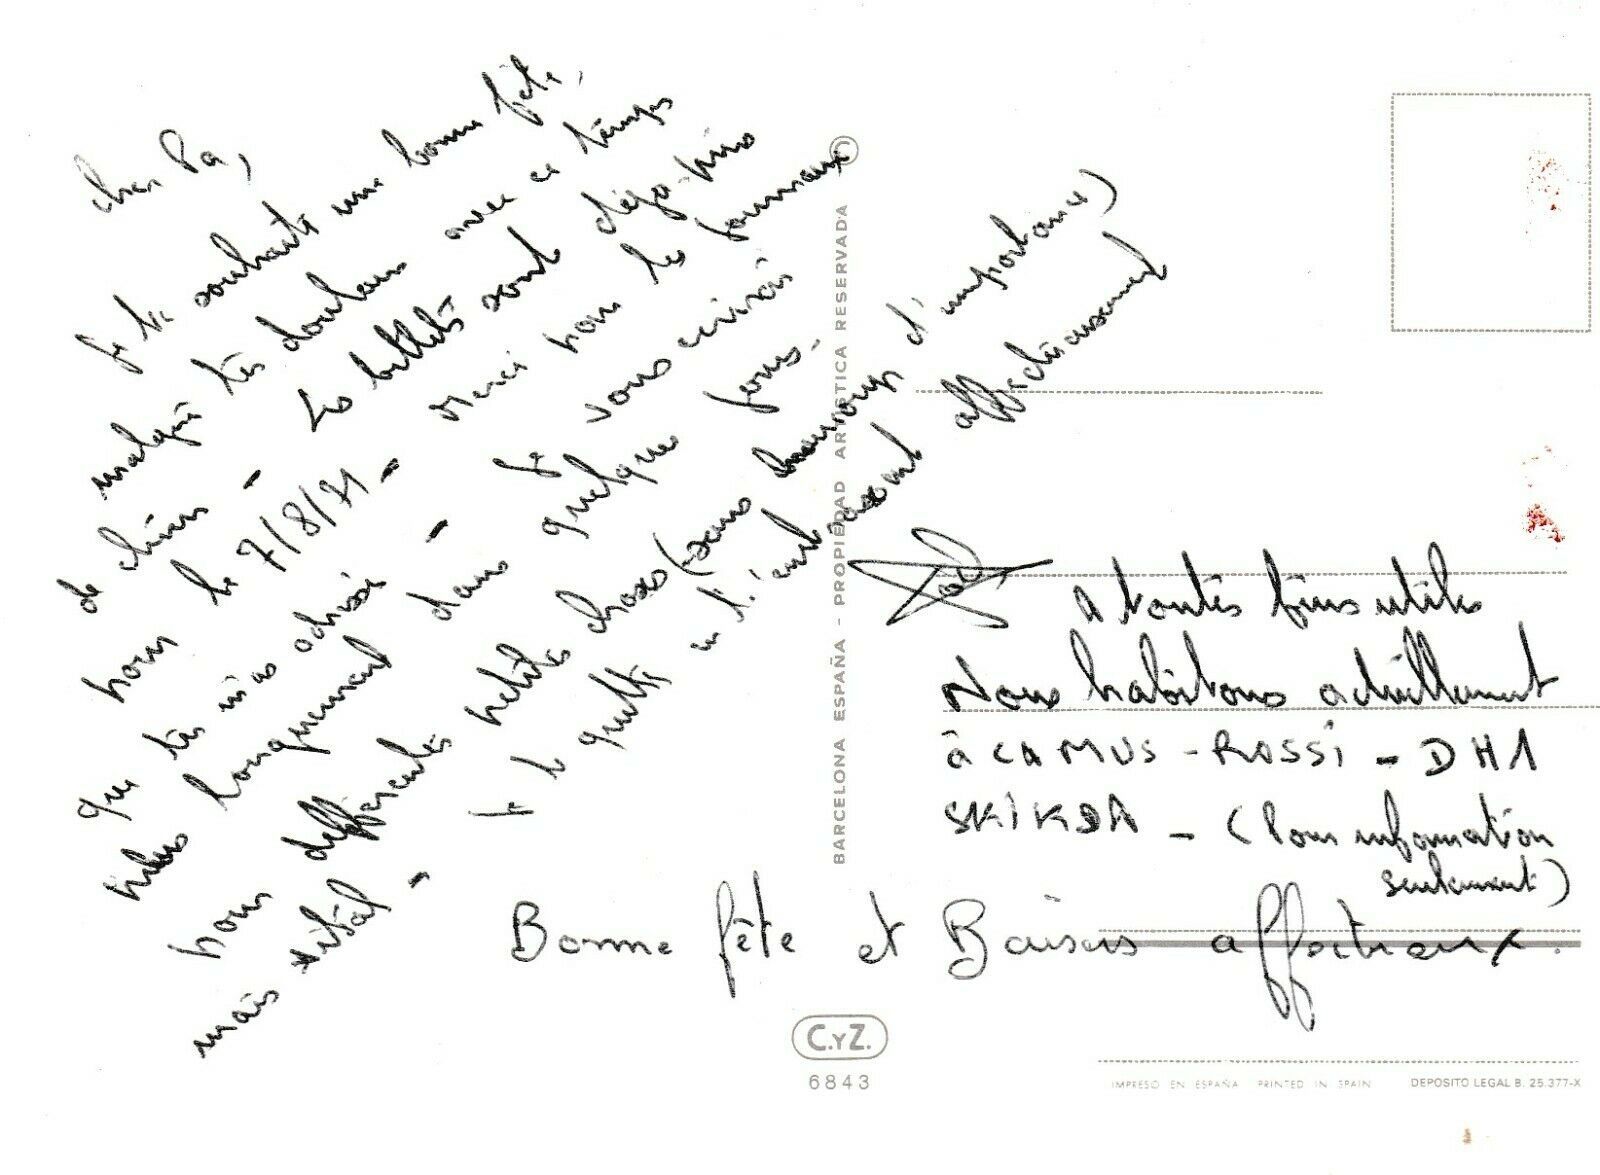 cher Pa,
Je te souhaite une bonne fête,
malgré tes douleurs avec ce temps
de chien - Les billets sont déjà pris
pour le 7/8/71 - Merci pour les journaux
que tu m'as adressé - Je vous écrirai
plus longuement dans quelques jours -
pour différentes petites choses (sans beaucoup d'importance)
mais - Je te quitte en t'embrassant affectueusement
Bonne fête et Baisers affectueux.
A toutes fins utiles
Nous habitons actuellement
à CAMUS-ROSSI - DH1
SKIKDA - (Pour information
seulement)
BARCELONA ESPAÑA - PROPIEDAD ARTISTICA RESERVADA
C.YZ.
6843
IMPRESO EN ESPAÑA PRINTED IN SPAIN DEPOSITO LEGAL B. 25.377-X